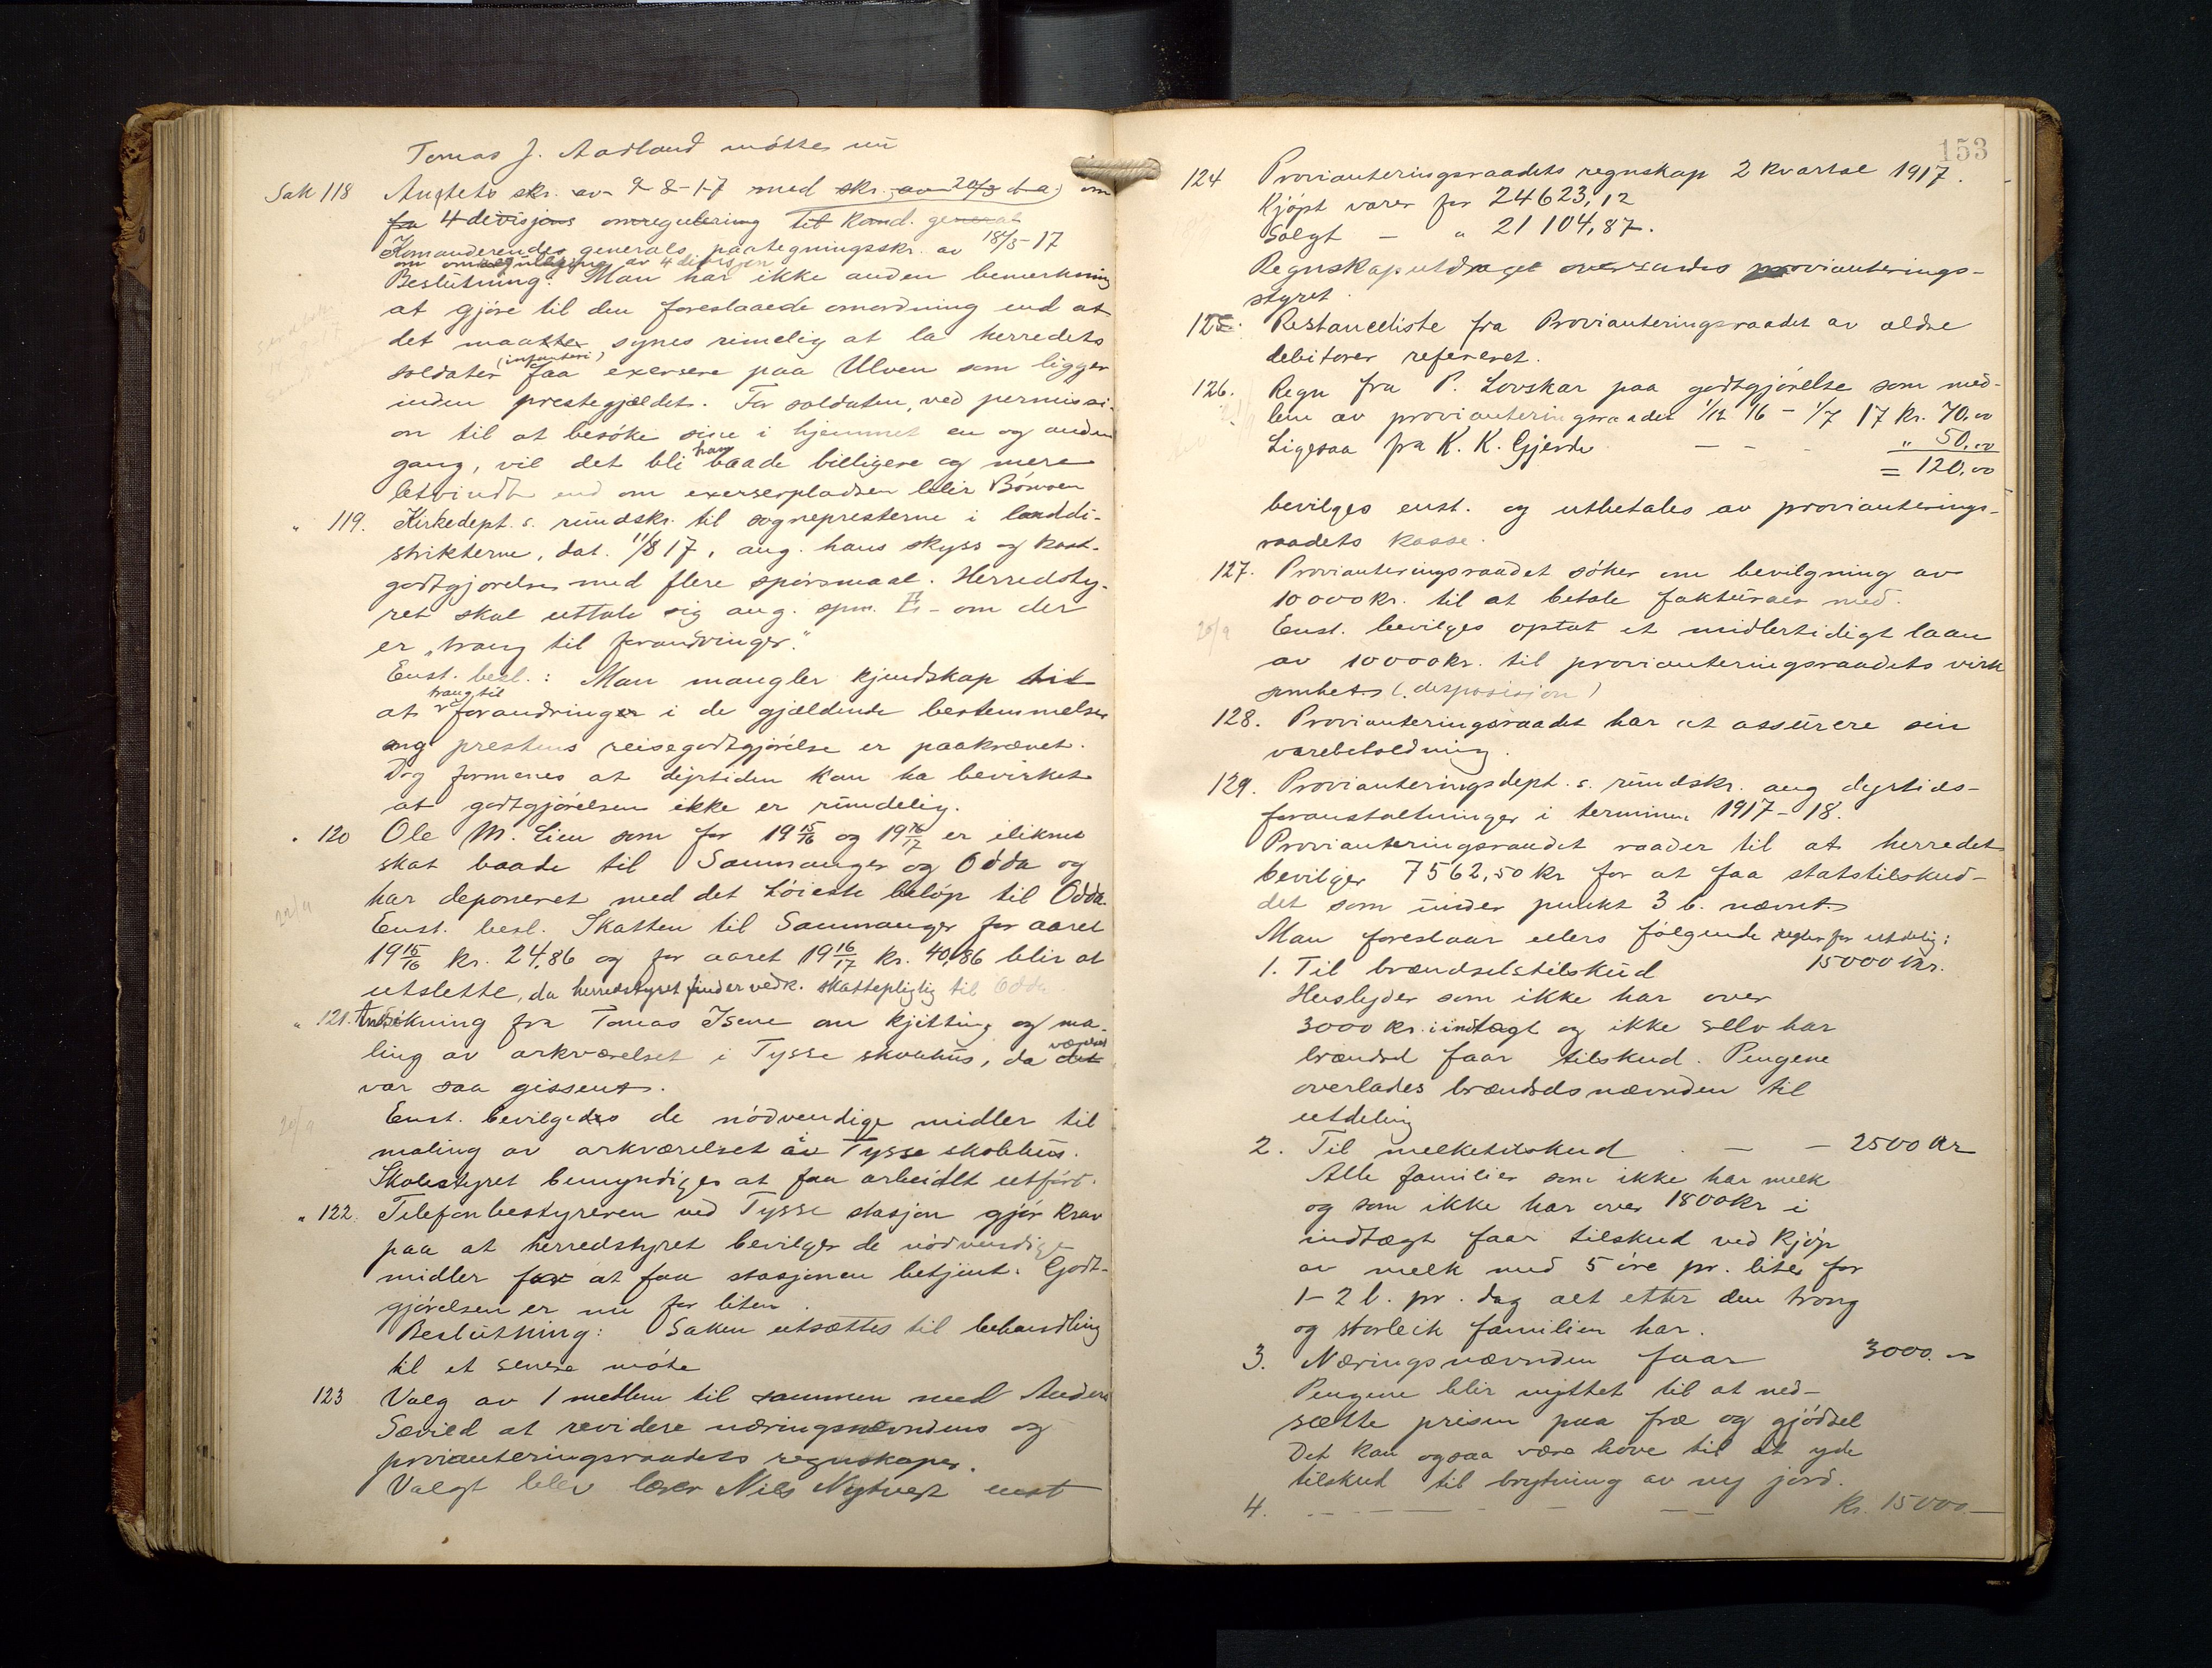 Tomas J. Aadland møtte nu
Sak 118 Amtets skr. av 9-8-17 med skr. av 20/3 d.a. om
fra 4 divisjons omregulering Til Komd. general
Komanderendes generals paategningsskr. av 18/5-17
om omregulering av 4 divisjon
Beslutning: Man har ikke anden bemerkning
at gjøre til den foreslaaede omordning end at
det maatte synes rimelig at la herredets
soldater (infanteri) faa exersere paa Ulven som ligger
inden prestegjældet. For soldaten, ved permissi-
on til at besøke sine i hjemmet en og anden
gang, vil det bli ham baade billigere og mere
letvindt end om exerserpladsen blir Bømoen
" 119. Kirkedept.s. rundskr. til sognepresterne i landdi-
strikterne, dat. 11/8 17, ang. hans skyss og kost-
godtgjørelse med flere spørsmaal. Herredsty-
ret skal uttale sig ang. spm. II - om der
er „trang til forandringer."
Enst. besl.: Man mangler kjendskap til
at trang til forandringer i de gjældende bestemmelser
ang prestens reisegodtgjørelse er paakrævet.
Dog formenes at dyrtiden kan ha bevirket
at godtgjørelsen ikke er rundelig.
" 120 Ole M. Lien som for 19 15/16 og 19 16/17 er iliknet
skat baade til Samnanger og Odda og
har deponeret med det høieste beløp til Odda.
22/9
Enst. besl. Skatten til Samnanger for aaret
19 15/16 kr. 24,86 og for aaret 19 16/17 kr. 40,86 blir at
utslette, da herredstyret finder vedk. skattepligtig til Odda
" 121. Ansøkning fra Tomas Isene om kjitting og ma-
ling av arkværelset i Tysse skolehus, da værelset det
var saa gissent.
20/9
Enst. bevilgedes de nødvendige midler til
maling av arkværelset av Tysse skolehus.
Skolestyret bemyndiges at faa arbeidet utført.
" 122. Telefonbestyreren ved Tysse stasjon gjør krav
paa at herredstyret bevilger de nødvendige
midler for at faa stasjonen betjent. Godt-
gjørelsen er nu for liten.
Beslutning: Saken utsættes til behandling
til et senere møte
123 Valg av 1 medlem til sammen med Anders
Sævild at revidere næringsnævndens og
provianteringsraadets regnskaper.
Valgt blev lærer Nils Nytvedt enst
153
124 Provianteringsraadets regnskap 2 kvartal 1917.
Kjøpt varer for 24623,12
Solgt - " 21104,87.
Regnskaputdraget oversendes provianterings-
styret.
125. Restanceliste fra Provianteringsraadet av ældre
debitorer refereret.
126. Regn fra P. Lovskar paa godtgjørelse som med-
lem av provianteringsraadet 1/12 16 - 1/7 17 kr. 70.00
Ligesaa fra K. K. Gjerde - - " 50.00
= 120.00
bevilges enst. og utbetales av provianterings-
raadets kasse.
127. Provianteringsraadet søker om bevilgning av
10000 kr. til at betale fakturaer med.
20/9
Enst. bevilges optat et midlertidigt laan
av 10000 kr. til provianteringsraadets virk
somhet (disposisjon)
128. Provianteringsraadet har at assurere sin
varebeholdning.
129. Provianteringsdept.s. rundskr. ang dyrtids-
foranstaltninger i terminen 1917-18.
Provianteringsraadet raader til at herredet
bevilger 7562,50 kr for at faa statstilskud-
det som under punkt 3 b. nævnt.
Man foreslaar ellers følgende regler for utdelig:
1. Til brændselstilskud 15000 kr.
Huslyder som ikke har over
3000 kr. i indtægt og ikke selv har
brændsel faar tilskud. Pengene
overlades brændselsnævnden til
utdeling
2. Til melketilskud - - 2500 kr
Alle familier som ikke har melk
og som ikke har over 1800 kr i
indtægt faar tilskud ved kjøp
av melk med 5 øre pr. liter for
1-2 l. pr. dag alt etter den trong
og storleik familien har.
3. Næringsnævnden faar 3000.00
Pengene blir nyttet til at ned-
sætte prisen paa frø og gjødsel
Det kan ogsaa være høve til at yde
tilskud til brytning av ny jord.
4. - - - - - kr. 15000.-